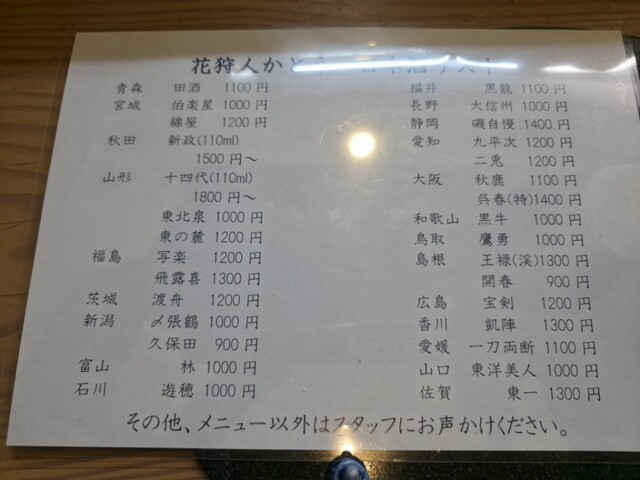 花狩人かとう 日本酒リスト
青森 田酒 1100円
宮城 伯楽星 1000円
綿屋 1200円
秋田 新政(110ml)
1500円〜
山形 十四代(110ml)
1800円〜
東北泉 1000円
東の麓 1200円
福島 写楽 1200円
飛露喜 1300円
茨城 渡舟 1200円
新潟 〆張鶴 1000円
久保田 900円
富山 林 1000円
石川 遊穂 1000円
福井 黒龍 1100円
長野 大信州 1000円
静岡 磯自慢 1400円
愛知 九平次 1200円
二兎 1200円
大阪 秋鹿 1100円
呉春(特)1400円
和歌山 黒牛 1000円
鳥取 鷹勇 1000円
島根 王禄(渓)1300円
開春 900円
広島 宝剣 1200円
香川 凱陣 1300円
愛媛 一刀両断 1100円
山口 東洋美人 1000円
佐賀 東一 1300円
その他、メニュー以外はスタッフにお声かけください。